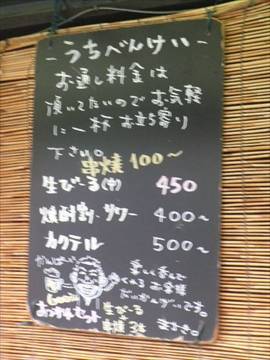 -うちべんけい-
お通し料金は
頂いてないのでお気軽
に一杯お立ち寄り
下さい。
串焼 100~
生びーる(中) 450
焼酎割・サワー 400~
カクテル 500~
かんぱーい
楽しく呑んで
くれるお客様
だいかんげいです。
おつかれセット
生びーる
+
串焼3本